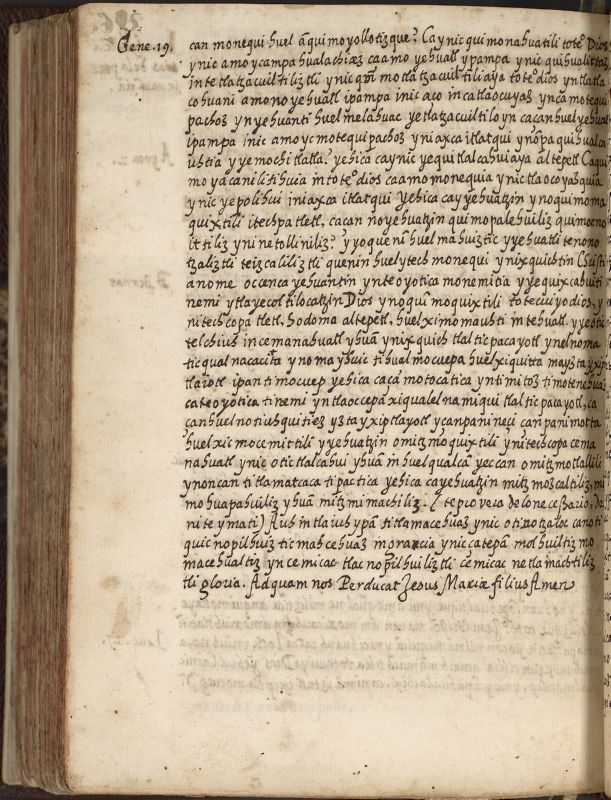 Gene. 19. can monequi huel āqui moyollotizque? Ca ynic quimonahuatili toteº Dios
ynic amo ycampa hualachiaz ca amo yehuatl ypampa ynic quihualittaz
in tetlatzacuiltiliztli ynic qm̄ motlatzacuiltiliaya toteº dios yn tlatla
cohuani amo no yehuatl ipampa inic aço incatlaocuyaz ynca motequi
pachoz yn yehuanti huel melahuac yetlatzacuiltiloyn ca çan huel yehual
ipampa inic amo yc motequipachoz yn iaxca itlatqui yn ōpa quihualca
uhtia yyemochi tlatla? yehica ca ynic yequitlalcahuiaya altepetl Ca qui
mo yacaniltihuia in toteº dios ca amo monequia ynic tlaocoyazquia
ynic yepolihui iniaxca itlatqui Yehica ca yyehuatzin ynoquimoma
quixtili itechpa tletl, ca çan no yehuatzin quimopalehuiliz quimocno
ittiliz yninetolliniliz? yyoque nī huel mahuiztic yyehuatli tenono
tzaliztli teizcaliliztli quenin huel ytech monequi ynixquichtin Christi
anome occenca yehuantin ynteoyotica monemitia yyequixcahuiti
nemi ytlayecoltilocatzin Dios ynoquimmoquixtili totecuiyo dios, y
nitechcopa tletl, Sodoma altepetl, huel ximomauhti in tehuatl yyeotic
telchiuh incemanahuatl yhuā ynixquich tlalticpacayotl ynelnoma
ticqual nacacitta ynoma yhuic tihualmocuepa huel xiquitta mayzta yxip
tlaiotl ipan timocuep yehica caçā motocatica yntimitoz timotenehuaz
ca teoyotica tinemi yn tlaoccepā xiqualelnamiqui tlalticpacayotl, ca
çan huel noniuhquitiez yztayxiptlayotl yçanpanineçi çan panimotta
huel xicmocemittili yyehuatzin omitzmoquixtili ynitechcopa cema
nahuatl ynic otictlalcahui yhuā in huel qualcā yeccan omitzmotlallili
ynoncan titlamatcaca tipactica yehica ca yehuatzin mitzmozcaltiliz, mi
mohuapahuiliz yhuā mitzmimachiliz. (te provera de lo necessario, Da
nite ymati) Auh in tlaiuhypā titlamacehuaz ynic otinotzaloc canoti
quic nopilhuiz ticmahcehuaz in gracia ynic çatepā molhuiltiz mo
macehualtiz yn cemicac tlacnopilhuiliztli cemicac netlamachtiliz
tli gloria. Ad quam nos Perducat Jesus Mariæ filius Amen